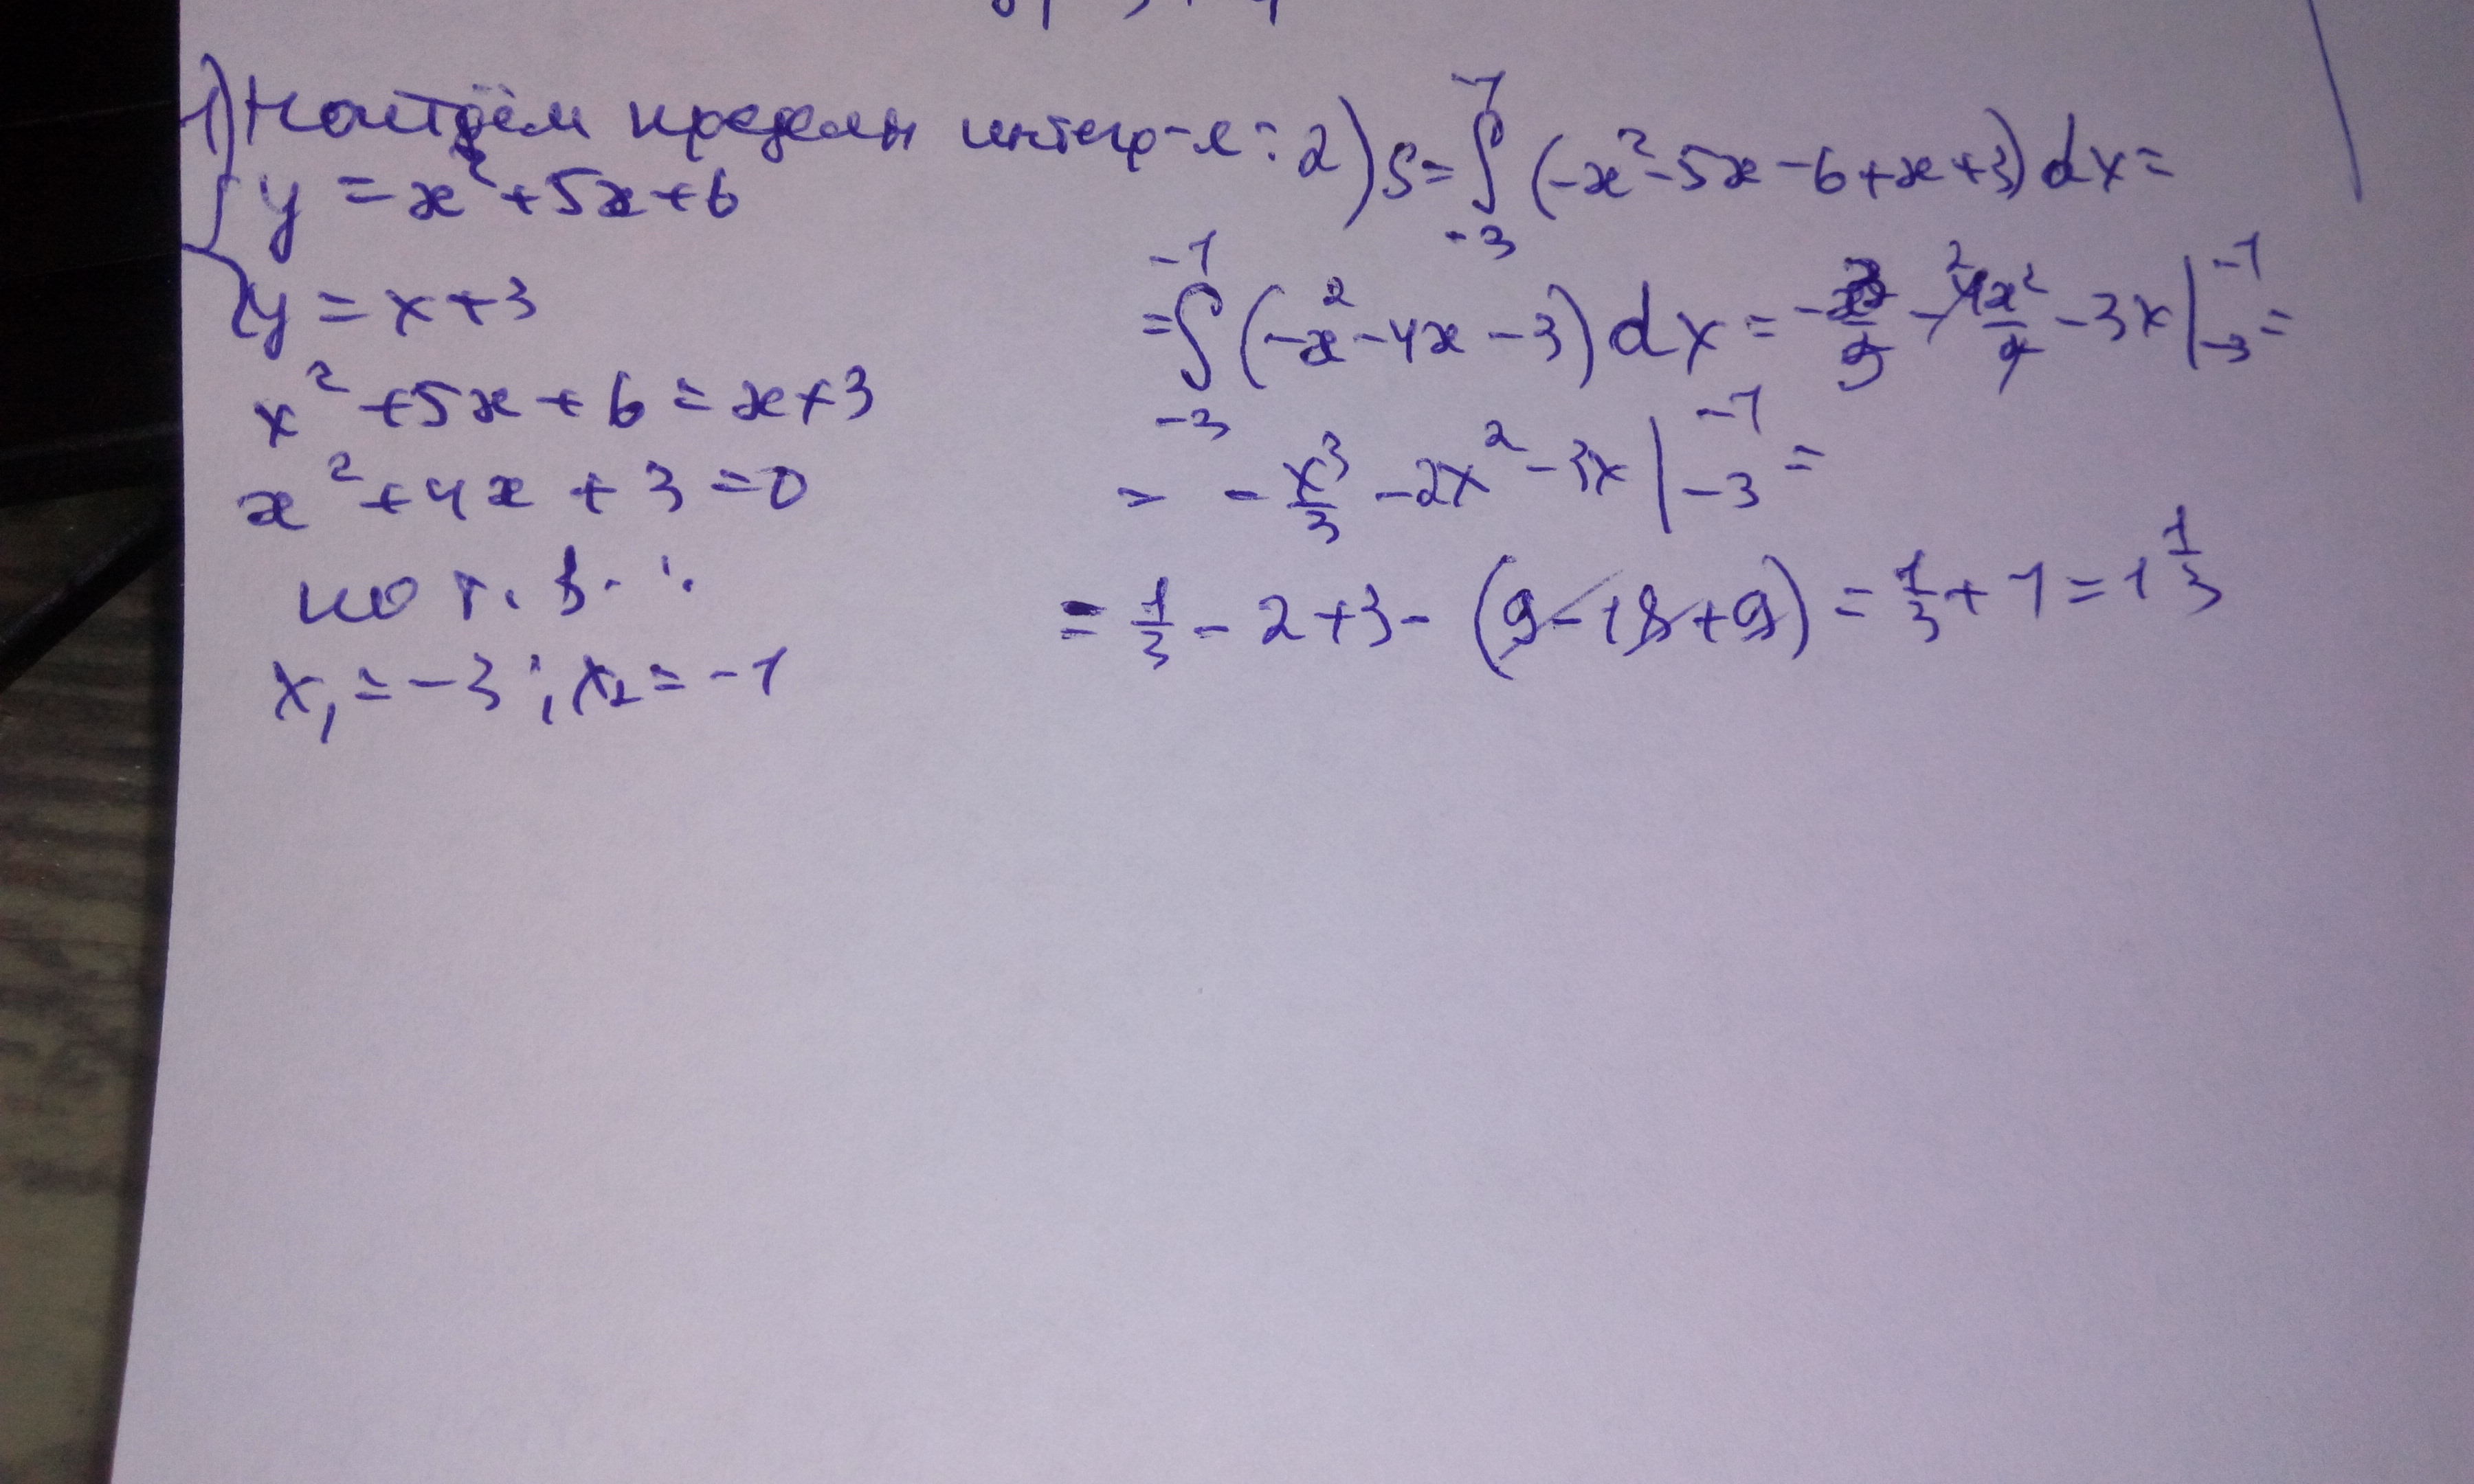 1) Найдём пределы интегр-я:
{ y = x² + 5x + 6
y = x + 3
x² + 5x + 6 = x + 3
x² + 4x + 3 = 0
по т. В.:
x₁ = -3; x₂ = -1
2) S = ∫₋₃⁻¹ (-x² - 5x - 6 + x + 3) dx =
= ∫₋₃⁻¹ (-x² - 4x - 3) dx = -x³/3 - 4x²/2 - 3x |₋₃⁻¹ =
= -x³/3 - 2x² - 3x |₋₃⁻¹ =
= 1/3 - 2 + 3 - (9 - 18 + 9) = 1/3 + 1 = 1 1/3